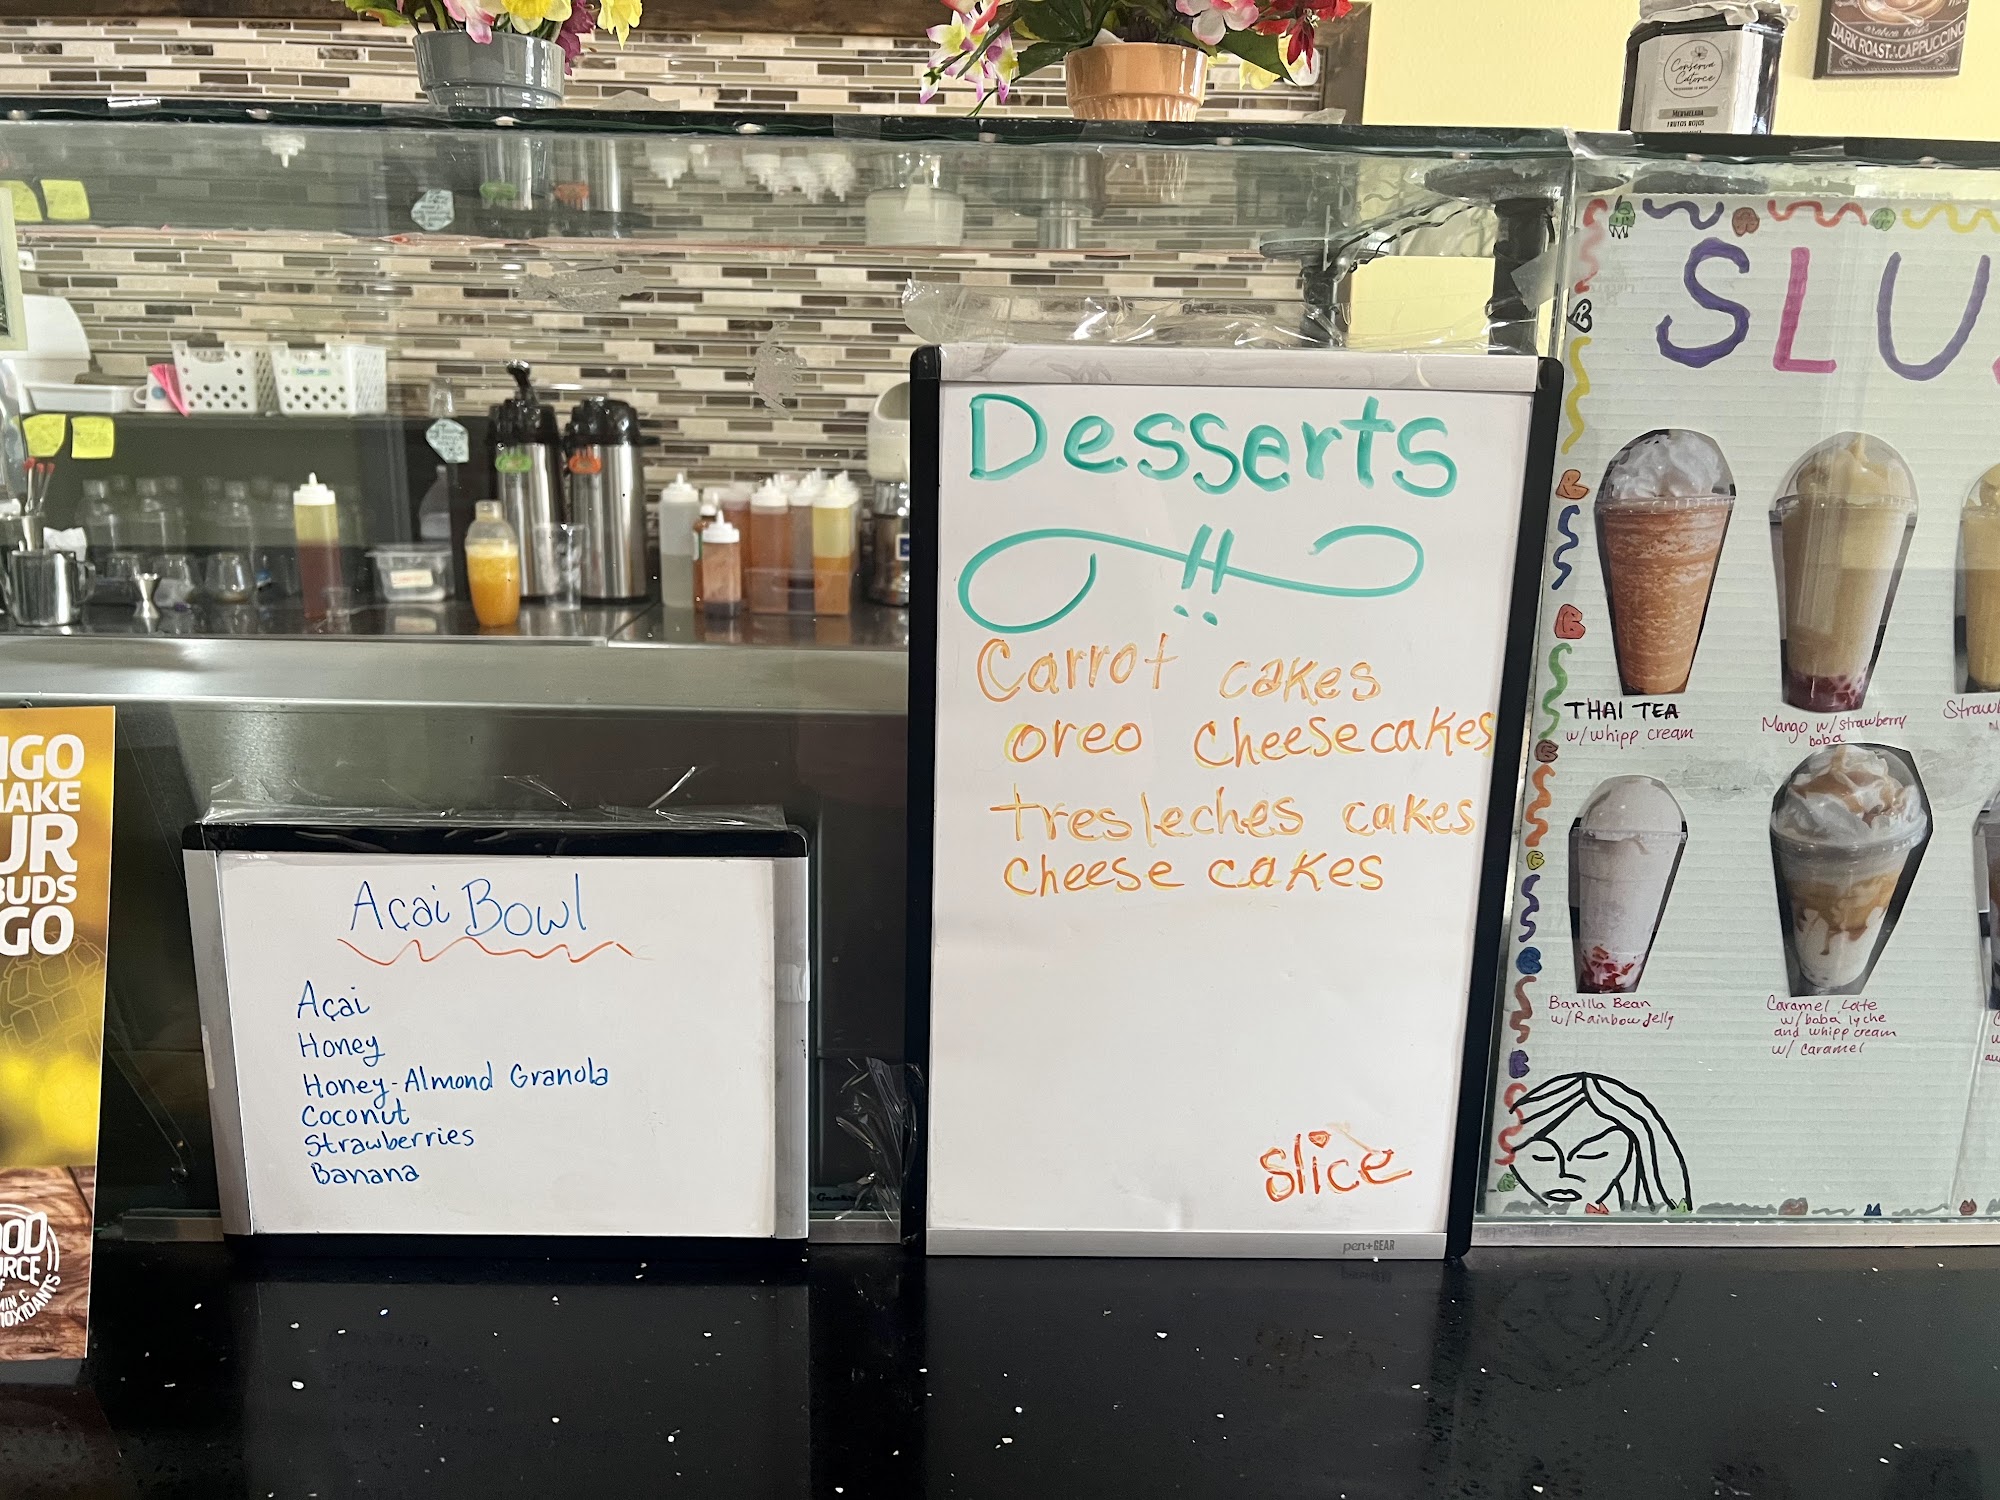 Conserva
Catorce
MERMELADA
FRUTOS ROJOS
arabica beans
DARK ROAST CAPPUCCINO
SLU
Desserts
!!
Carrot cakes
oreo cheesecakes
tresleches cakes
cheese cakes
slice
pen+GEAR
Açai Bowl
Açai
Honey
Honey-Almond Granola
Coconut
Strawberries
Banana
THAI TEA
w/whipp cream
Mango w/strawberry
boba
Banilla Bean
w/Rainbow Jelly
Caramel Latte
w/boba lyche
and whipp cream
w/ caramel
NGO
MAKE
UR
BUDS
GO